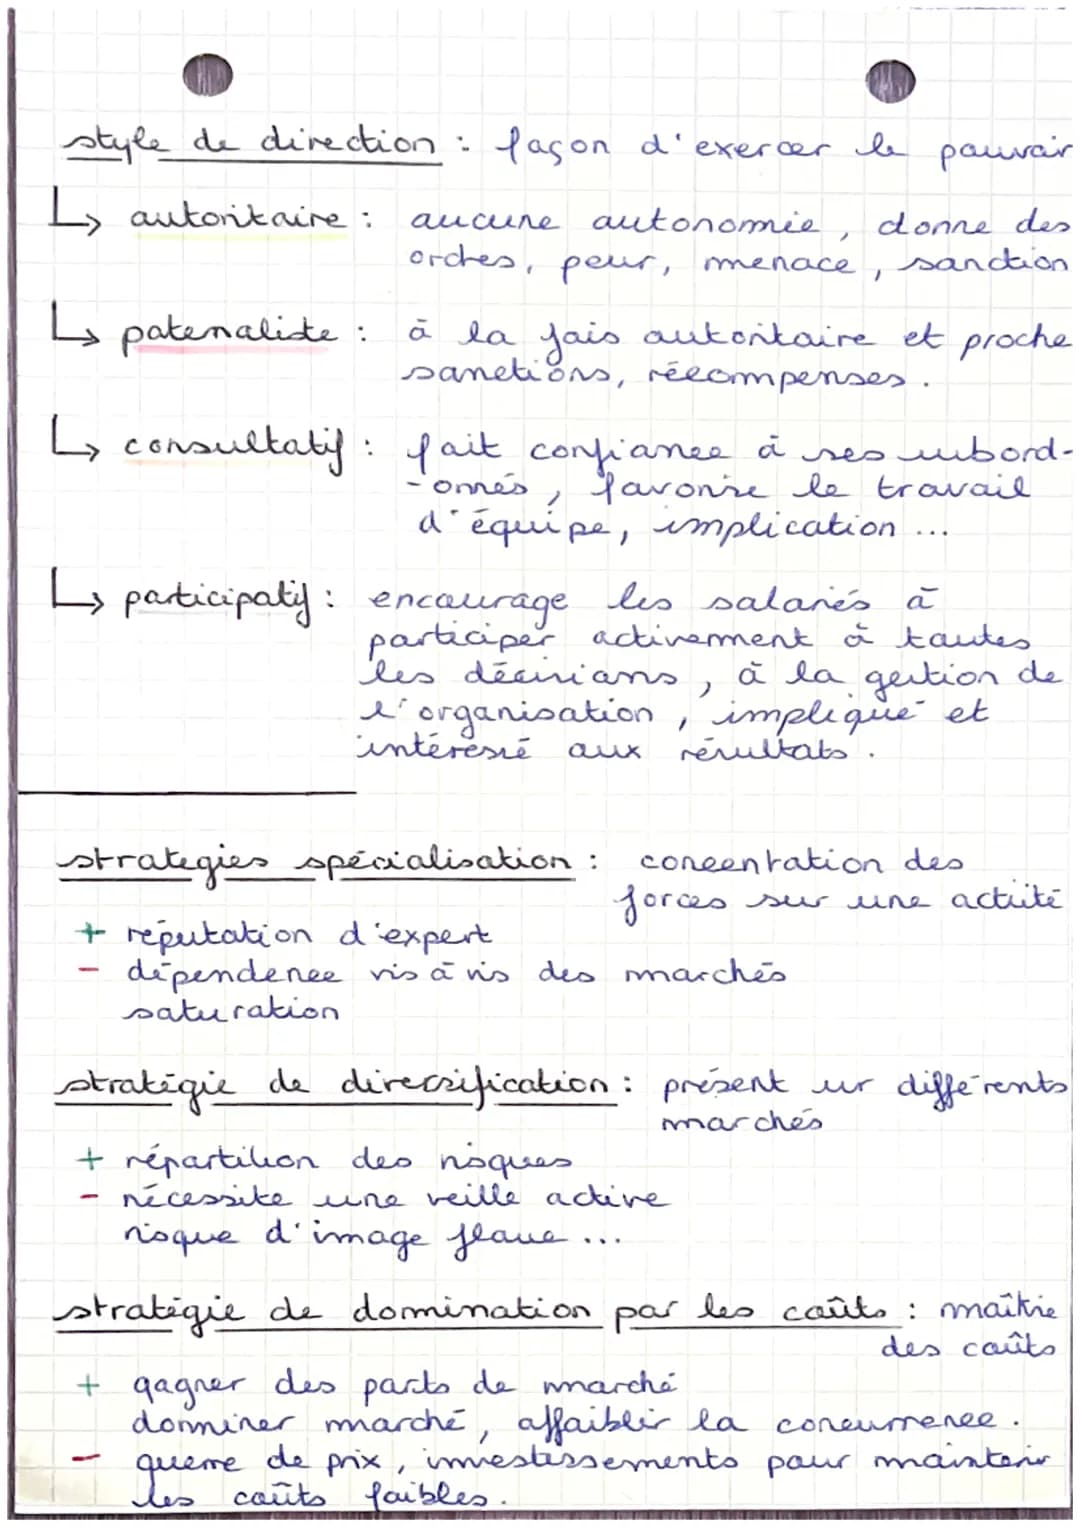 style de direction : façon d'exercer le pouvoir
↳ autoritaire : aucune autonomie, donne des
ordres, peur, menace, sanction
↳ paternaliste : à la fois autoritaire et proche
sanctions, récompenses.
↳ consultatif : fait confiance à ses subord-
-onnés, favorise le travail
d'équipe, implication ...
↳ participatif : encourage les salariés à
participer activement à toutes
les décisions, à la gestion de
l'organisation, impliqué et
intéressé aux résultats.
strategies spécialisation : concentration des
forces sur une activité
+ réputation d'expert
- dépendence vis à vis des marchés
saturation
stratégie de diversification : présent sur différents
marchés
+ répartition des risques
- nécessite une veille active
risque d'image floue ...
stratégie de domination par les coûts : maîtrie
des coûts
+ gagner des parts de marché
dominer marché, affaiblir la concurrence.
- guerre de prix, investissements pour maintenir
les coûts faibles.